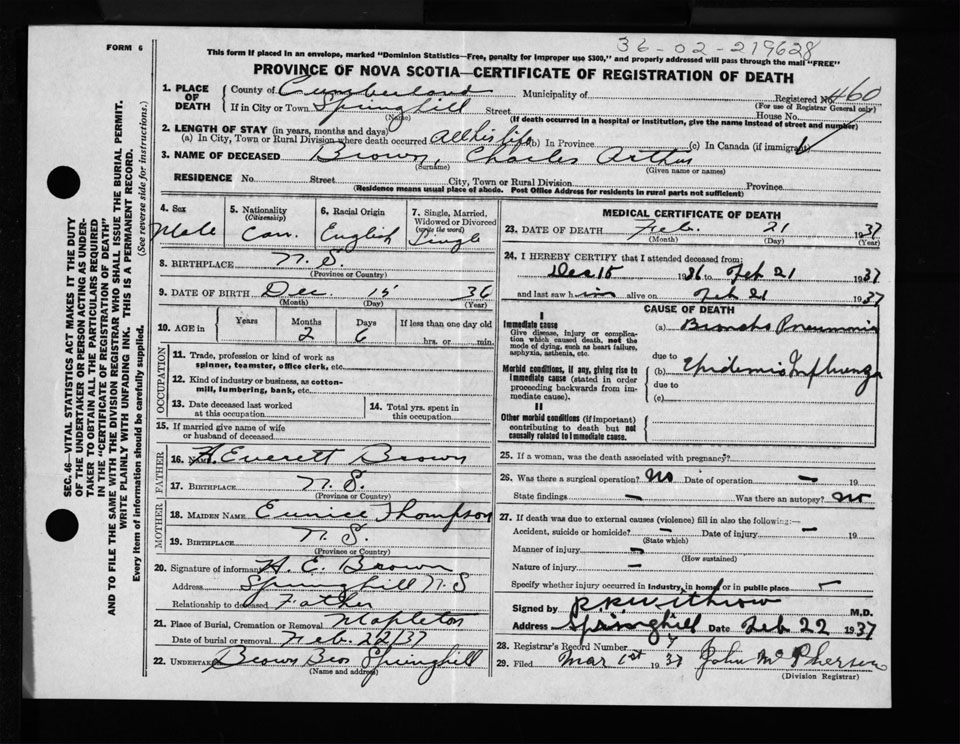 36-02-219628
FORM 6
This form if placed in an envelope, marked "Dominion Statistics—Free, penalty for improper use $300," and properly addressed will pass through the mail "FREE"
PROVINCE OF NOVA SCOTIA—CERTIFICATE OF REGISTRATION OF DEATH
1. PLACE OF DEATH
County of Cumberland Municipality of Registered No. 460
(For use of Registrar General only)
If in City or Town Springhill Street House No.
(Name) (If death occurred in a hospital or institution, give the name instead of street and number)
2. LENGTH OF STAY (in years, months and days)
(a) In City, Town or Rural Division where death occurred all his life (b) In Province (c) In Canada (if immigrant)
3. NAME OF DECEASED Brown, Charles Arthur
(Surname) (Given name or names)
RESIDENCE No. Street City, Town or Rural Division Province
(Residence means usual place of abode. Post Office Address for residents in rural parts not sufficient)
4. Sex Male
5. Nationality (Citizenship) Can.
6. Racial Origin English
7. Single, Married, Widowed or Divorced (write the word) Single
8. BIRTHPLACE N. S.
(Province or Country)
9. DATE OF BIRTH Dec. 15 36
(Month) (Day) (Year)
10. AGE in Years Months 2 Days 6 If less than one day old hrs. or min.
OCCUPATION
11. Trade, profession or kind of work as spinner, teamster, office clerk, etc.
12. Kind of industry or business, as cotton-mill, lumbering, bank, etc.
13. Date deceased last worked at this occupation
14. Total yrs. spent in this occupation
15. If married give name of wife or husband of deceased
FATHER
16. NAME H. Everett Brown
17. BIRTHPLACE N. S.
(Province or Country)
MOTHER
18. MAIDEN NAME Eunice Thompson
19. BIRTHPLACE N. S.
(Province or Country)
20. Signature of informant H. E. Brown
Address Springhill N. S
Relationship to deceased Father
21. Place of Burial, Cremation or Removal Mapleton
Date of burial or removal Feb. 22/37
22. UNDERTAKER Brown Bros Springhill
(Name and address)
MEDICAL CERTIFICATE OF DEATH
23. DATE OF DEATH Feb. 21 1937
(Month) (Day) (Year)
24. I HEREBY CERTIFY that I attended deceased from:
Dec 15 1936 to Feb 21 1937
and last saw him alive on Feb 21 1937
CAUSE OF DEATH
I
Immediate cause
Give disease, injury or complication which caused death, not the mode of dying, such as heart failure, asphyxia, asthenia, etc.
(a) Broncho Pneumonia
due to
Morbid conditions, if any, giving rise to immediate cause (stated in order proceeding backwards from immediate cause).
(b) Epidemic Influenza
due to
(c)
II
Other morbid conditions (if important) contributing to death but not causally related to immediate cause.
25. If a woman, was the death associated with pregnancy?
26. Was there a surgical operation? No Date of operation — 19
State findings — Was there an autopsy? No
27. If death was due to external causes (violence) fill in also the following:—
Accident, suicide or homicide? — Date of injury — 19
(State which)
Manner of injury —
(How sustained)
Nature of injury —
Specify whether injury occurred in industry, in home, or in public place
Signed by M.D.
Address Springhill Date Feb 22 1937
28. Registrar's Record Number
29. Filed Mar 1st 1937 John McPherson
(Division Registrar)
SEC. 46—VITAL STATISTICS ACT MAKES IT THE DUTY
OF THE UNDERTAKER OR PERSON ACTING AS UNDER-
TAKER TO OBTAIN ALL THE PARTICULARS REQUIRED
IN THE "CERTIFICATE OF REGISTRATION OF DEATH"
AND TO FILE THE SAME WITH THE DIVISION REGISTRAR WHO SHALL ISSUE THE BURIAL PERMIT.
WRITE PLAINLY WITH UNFADING INK. THIS IS A PERMANENT RECORD.
Every item of information should be carefully supplied. (See reverse side for instructions.)